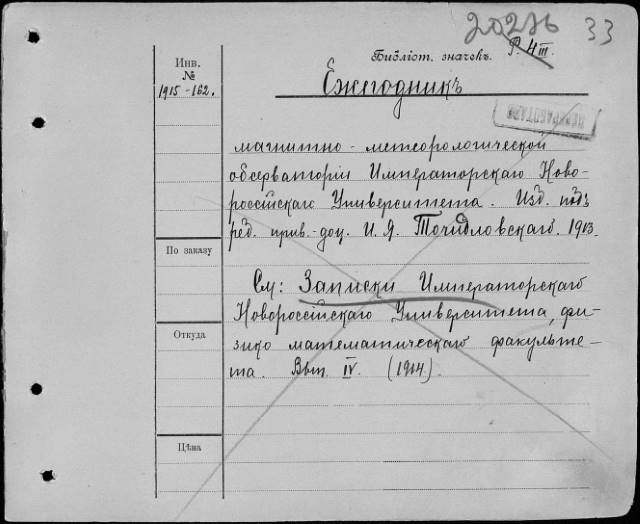 20276 33
Библіот. значекъ.
Р. 4 III.
Инв.
№
1915-162.
Ежегодникъ
магнитно-метеорологической
обсерваторіи Императорскаго Ново-
россійскаго Университета. Изд. подъ
ред. прив.-доц. И. Я. Точидловскаго. 1913.
По заказу
См: Записки Императорскаго
Новороссійскаго Университета, фи-
зико математическаго факульте-
та. Вып. IV. (1914).
Откуда
Цѣна